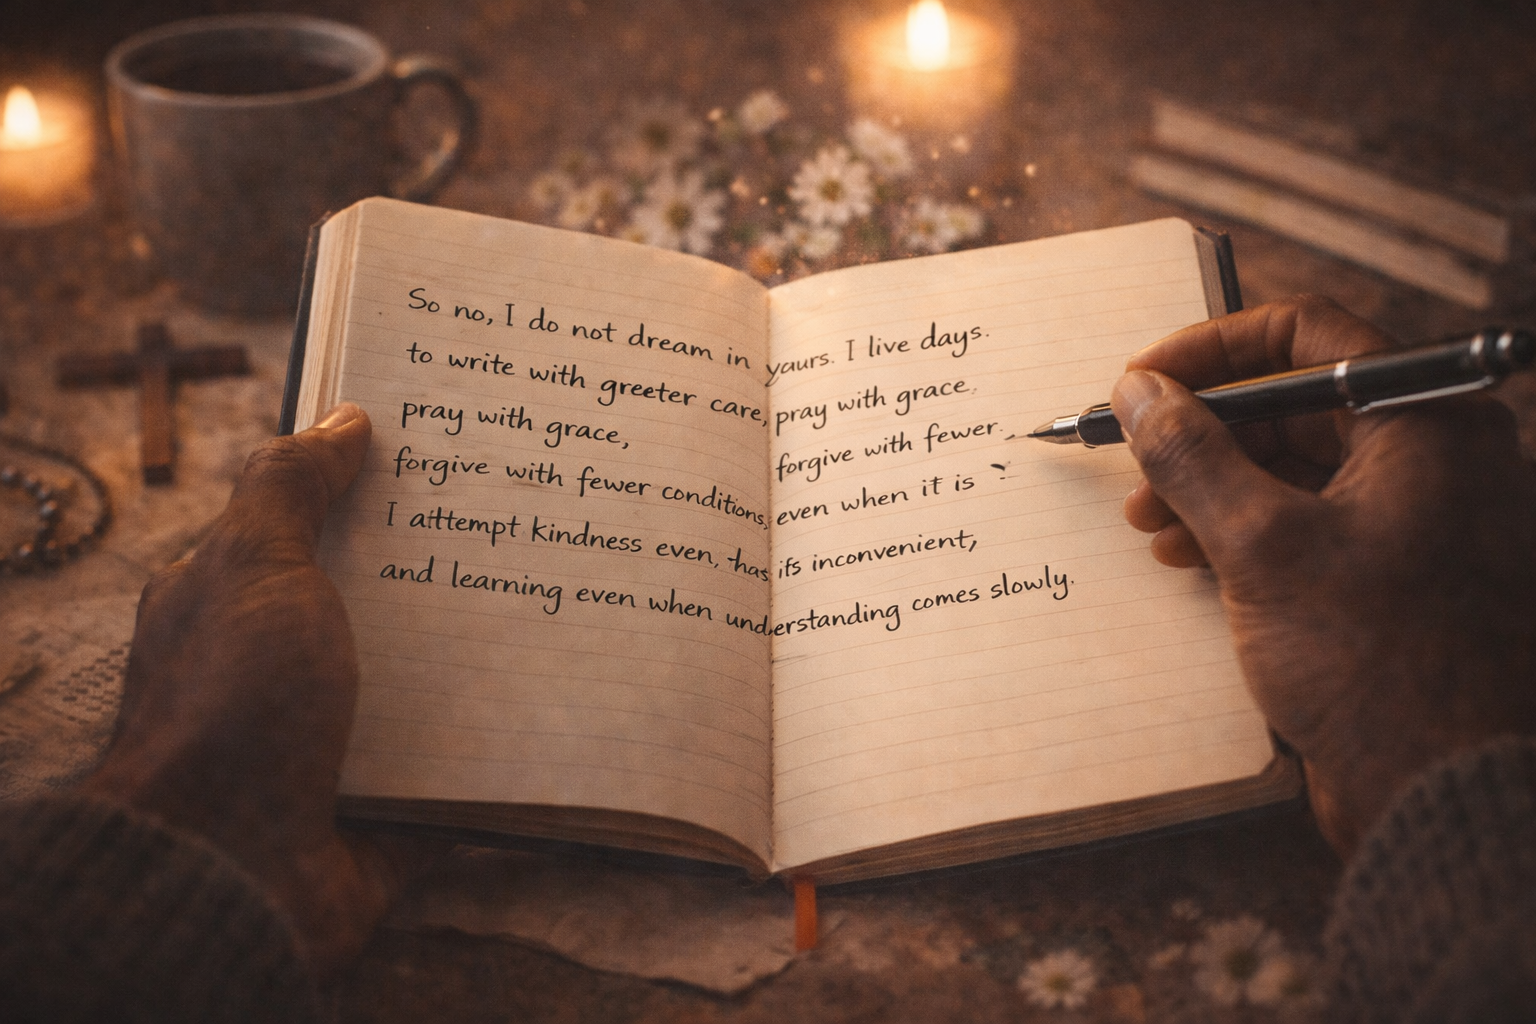 So no, I do not dream in yaurs. I live days.
to write with greeter care, pray with grace.
pray with grace, forgive with fewer.
forgive with fewer conditions, even when it is
I attempt kindness even, thas ifs inconvenient,
and learning even when understanding comes slowly.